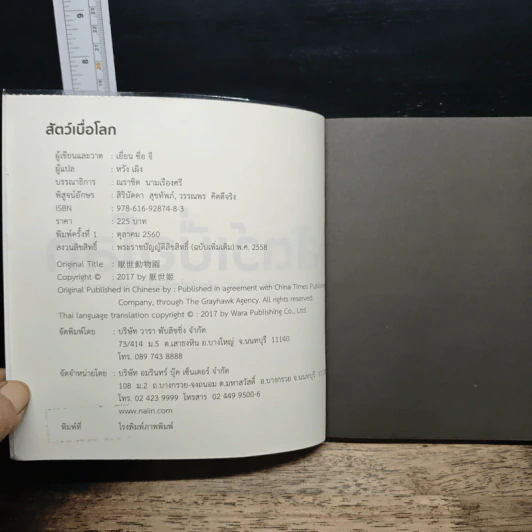 สัตว์เบื่อโลก
ผู้เขียนและวาด : เยี่ยน ซื่อ จี
ผู้แปล : หวัง เผิง
บรรณาธิการ : ณราชิต นามเรืองศรี
พิสูจน์อักษร : สิรินัดดา สุขทัพภ์, วรรณพร คิดดีจริง
ISBN : 978-616-92874-8-3
ราคา : 225 บาท
พิมพ์ครั้งที่ 1 : ตุลาคม 2560
สงวนลิขสิทธิ์ : พระราชบัญญัติลิขสิทธิ์ (ฉบับเพิ่มเติม) พ.ศ. 2558
Original Title : 厭世動物園
Copyright © : 2017 by 厭世姬
Original Published in Chinese by : Published in agreement with China Times Publishing
Company, through The Grayhawk Agency. All rights reserved.
Thai language translation copyright © : 2017 by Wara Publishing Co., Ltd.
จัดพิมพ์โดย : บริษัท วารา พับลิชชิ่ง จำกัด
73/414 ม.5 ต.เสาธงหิน อ.บางใหญ่ จ.นนทบุรี 11140
โทร. 089 743 8888
จัดจำหน่ายโดย : บริษัท อมรินทร์ บุ๊ค เซ็นเตอร์ จำกัด
108 ม.2 ถ.บางกรวย-จงถนอม ต.มหาสวัสดิ์ อ.บางกรวย จ.นนทบุรี 11130
โทร. 02 423 9999 โทรสาร 02 449 9500-6
www.naiin.com
พิมพ์ที่ : โรงพิมพ์ภาพพิมพ์